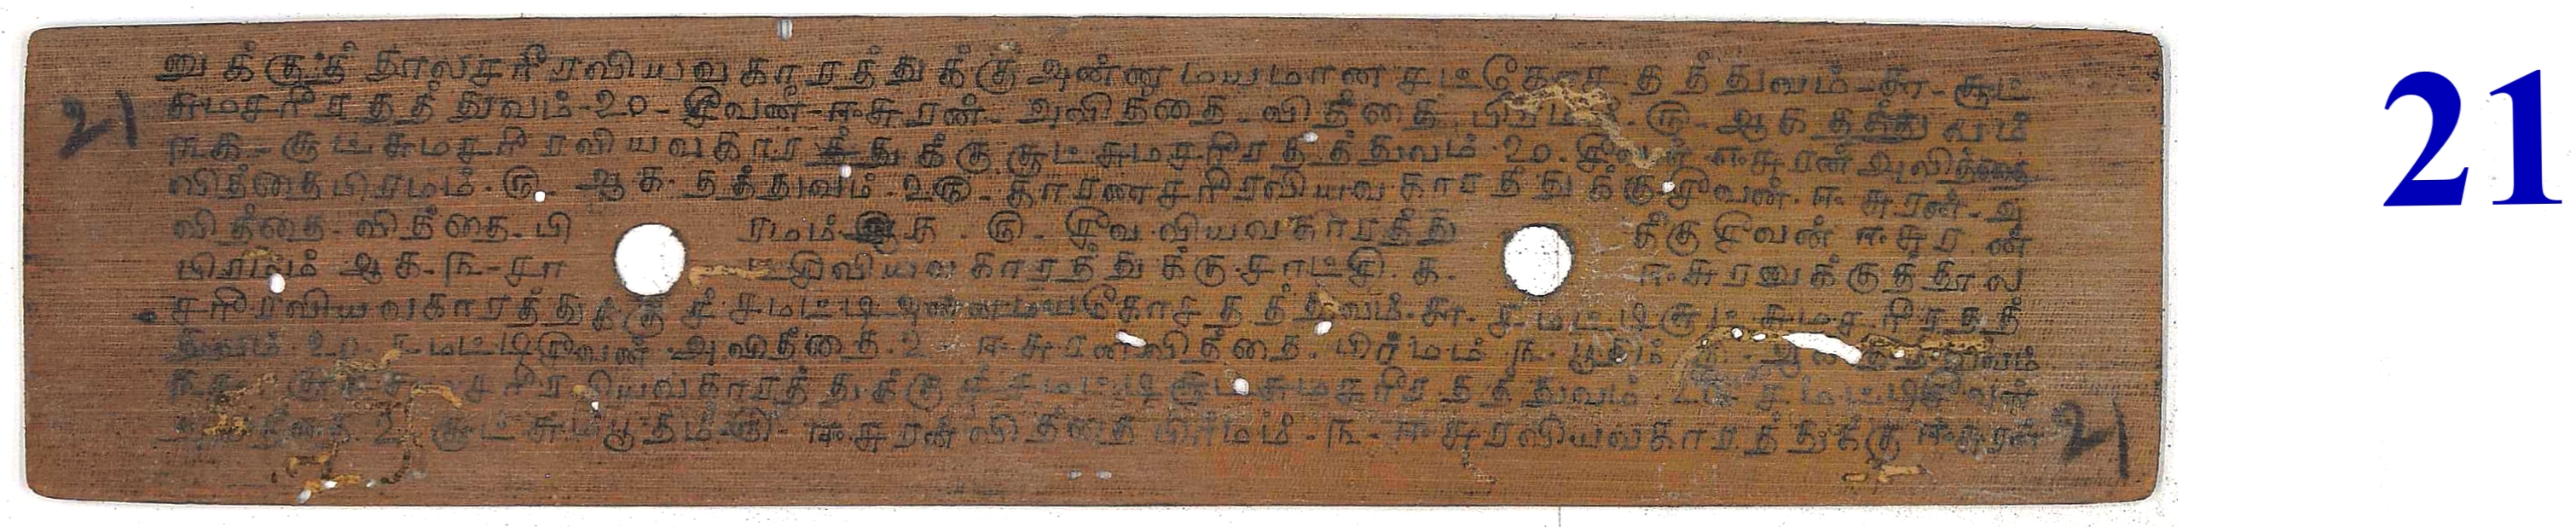 னுக்குத் தூலசரீரவியவகாரத்துக்கு அன்னமயமான சட்கோச தத்துவம்-சு-சூட்
சுமசரீரதத்துவம்-20-சீவன்-ஈசுரன்-அவித்தை-வித்தை பிரமம்-௫-ஆக தத்துவம்
௩௧-சூட்சுமசரீரவியவகாரத்துக்கு சூட்சுமசரீரதத்துவம்-20-சீவன்-ஈசுரன் அவித்தை
வித்தைபிரமம்-௫-ஆக-தத்துவம்-௨௫-காரணசரீரவியவகாரத்துக்கு சீவன்-ஈசுரன்-அ
வித்தை-வித்தை-பி ரமம்-ஆக-௫-சீவவியவகாரத்து க்கு சீவன் ஈசுரன்
பிரமம் ஆக-௩-சா ட்சிவியவகாரத்துக்கு-சாட்சி-௧- ஈசுரனுக்குத்தூல
சரீரவியவகாரத்துக்குச் சமட்டி அன்னமயகோச தத்துவம்-சு-சமட்டி சூட்சுமசரீரதத்
துவம்-20-சமட்டிசீவன் அவித்தை-2-ஈசுரன் வித்தை-பிர்மம்-௩-பூதம்
சரீரவியவகாரத்துக்குச் சமட்டி சூட்சுமசரீரதத்துவம் சமட்டிசீவன்
2-சூட்சும்பூதம்-௫-ஈசுரன் வித்தை பிர்மம்-௩-ஈசுரவியவகாரத்துக்கு ஈசுரன்
21
21
21